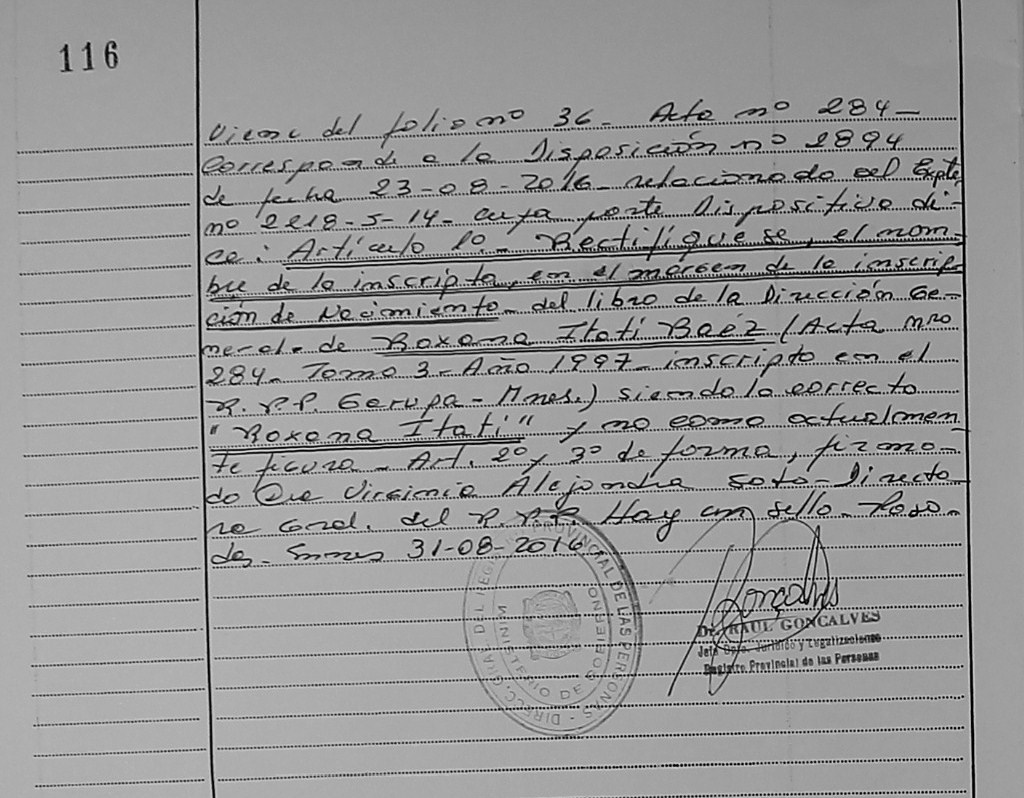 116
Viene del folio nº 36- Acta nº 284-
Corresponde a la Disposición nº 2894
de fecha 23-08-2016- relacionado al Expte
nº 2218-S-14- cuya parte Dispositiva di-
ce: Artículo 1º- Rectifíquese, el nom-
bre de la inscripta, en el margen de la inscrip-
ción de Nacimiento- del libro de la Dirección Ge-
neral- de Roxana Itatí Baéz (Acta nro
284- Tomo 3- Año 1997- inscripta en el
R.P.P. Garupa- Mnes.) siendo lo correcto
"Roxana Itatí" y no como actualmen-
te figura- Art. 2º y 3º de forma, firma-
do Dra Virginia Alejandra Soto- Directo
ra Gral. del R.P.P. Hay un sello- Posa-
das- Mnes 31-08-2016
DIREC. GRAL DEL REGISTRO PROVINCIAL DE LAS PERSONAS -
MINISTERIO DE GOBIERNO
Gonçalves
Dr. RAUL GONCALVES
Jefe Dpto. Jurídico y Legalizaciones
Registro Provincial de las Personas